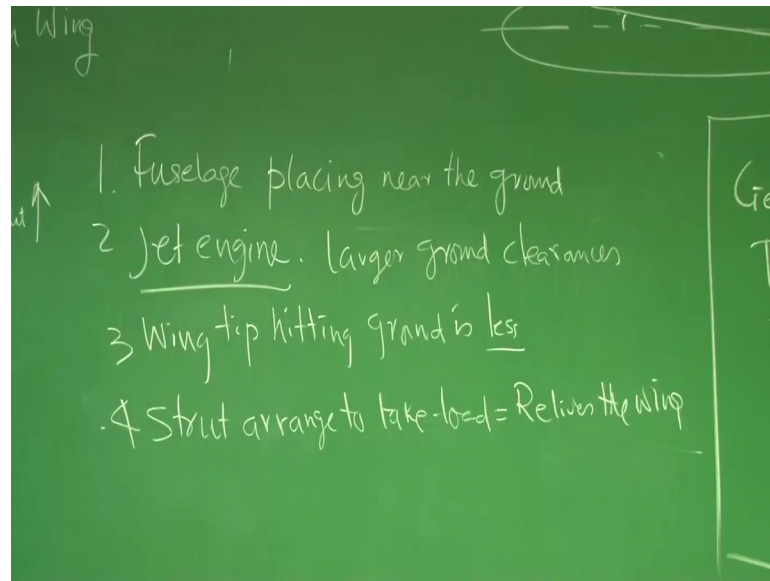 Wing
1. Fuselage placing near the ground
2 Jet engine. larger ground clearances
3 Wing tip hitting ground is less
4 Strut arrange to take-load = Relives the wing
Ge
T